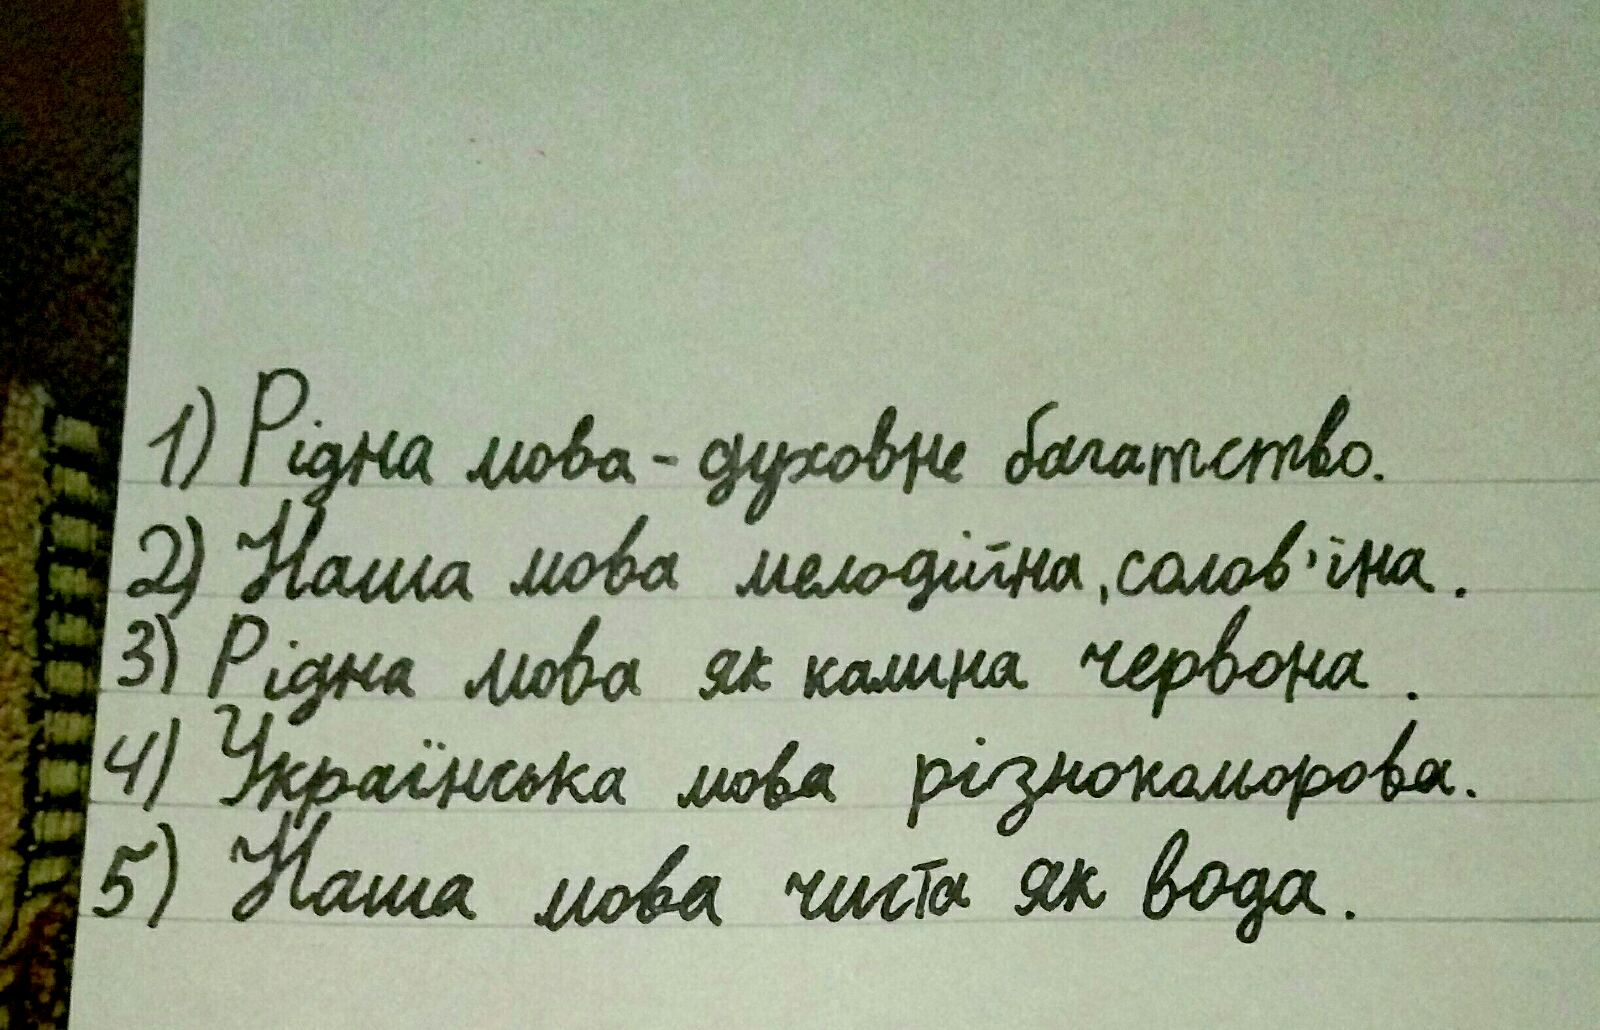 1) Рідна мова - духовне багатство.
2) Наша мова мелодійна, солов'їна.
3) Рідна мова як калина червона.
4) Українська мова різнокольорова.
5) Наша мова чиста як вода.